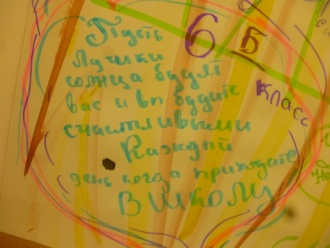 Пусть
Лучики
солнца будят
вас и вы будите
счастливыми
Каждый
день когда приходите
В ШКОЛУ
6 Б
класс